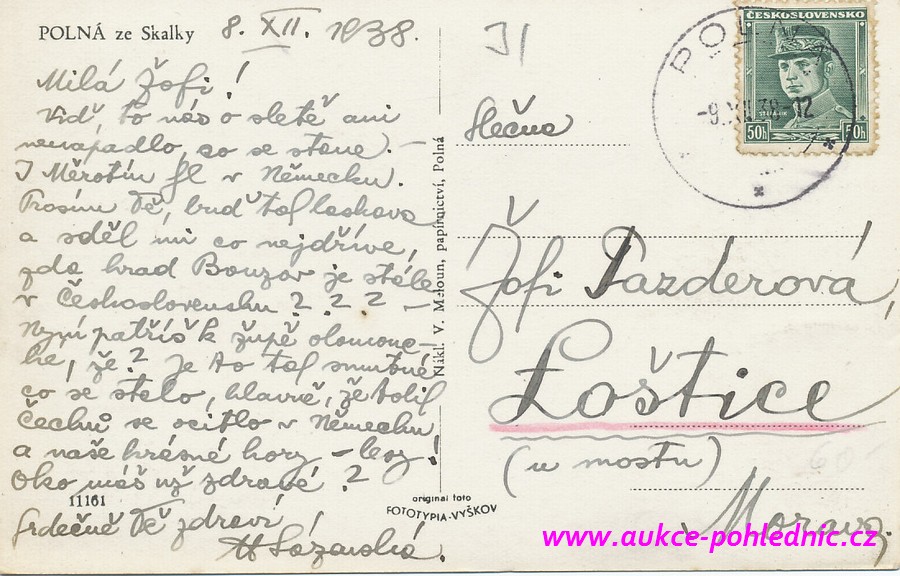 POLNÁ ze Skalky 8. XII. 1938.
Milá Žofi!
Viď, to nás o sletě ani
nenapadlo, co se stane. –
I Měrotín je v Německu.
Prosím Tě, buď tak laskava
a sděl mi co nejdříve,
zda hrad Bouzov je stále
v Československu ? ? ? –
Nyní patříš k župě olomouc-
ké, že? Je to tak smutné
co se stalo, hlavně, že tolik
Čechů se ocitlo v Německu
a naše krásné hory –
Oko máš už zdravé ?
11161
Srdečně Tě zdraví
Nákl. V. Meloun, papírnictví, Polná
original foto
FOTOTYPIA-VYŠKOV
ČESKOSLOVENSKO
50h 50h
POLNÁ
-9.XII.38-12
Slečna
Žofi Pazderová,
Loštice
(u mostu)
Morava.
www.aukce-pohlednic.cz